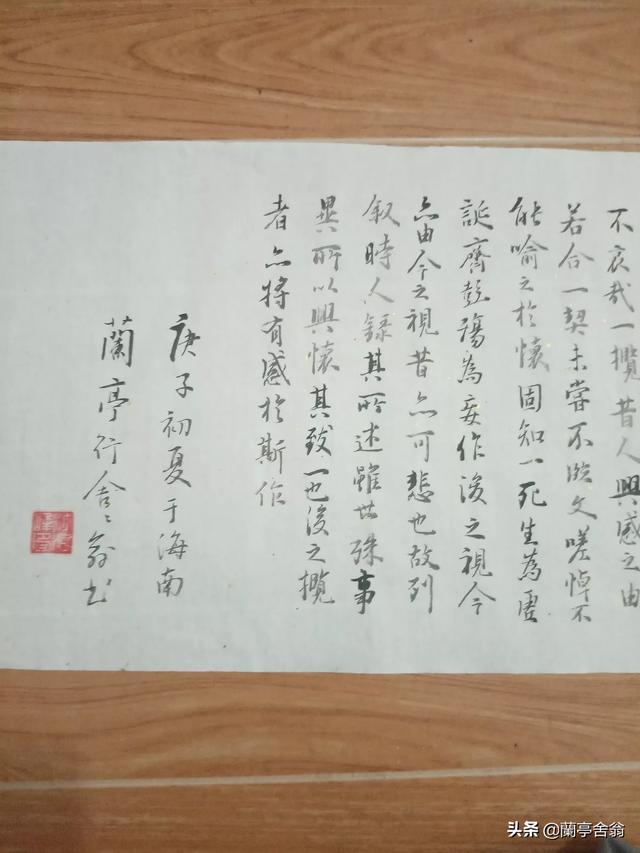 不哀哉一攬昔人興感之由
若合一契未嘗不臨文嗟悼不
能喻之於懷固知一死生為虛
誕齊彭殤為妄作後之視今
亦由今之視昔亦可悲也故列
叙時人錄其所述雖世殊事
異所以興懷其致一也後之攬
者亦將有感於斯作
庚子初夏于海南
蘭亭行舍舍翁书
头条 @蘭亭舍翁